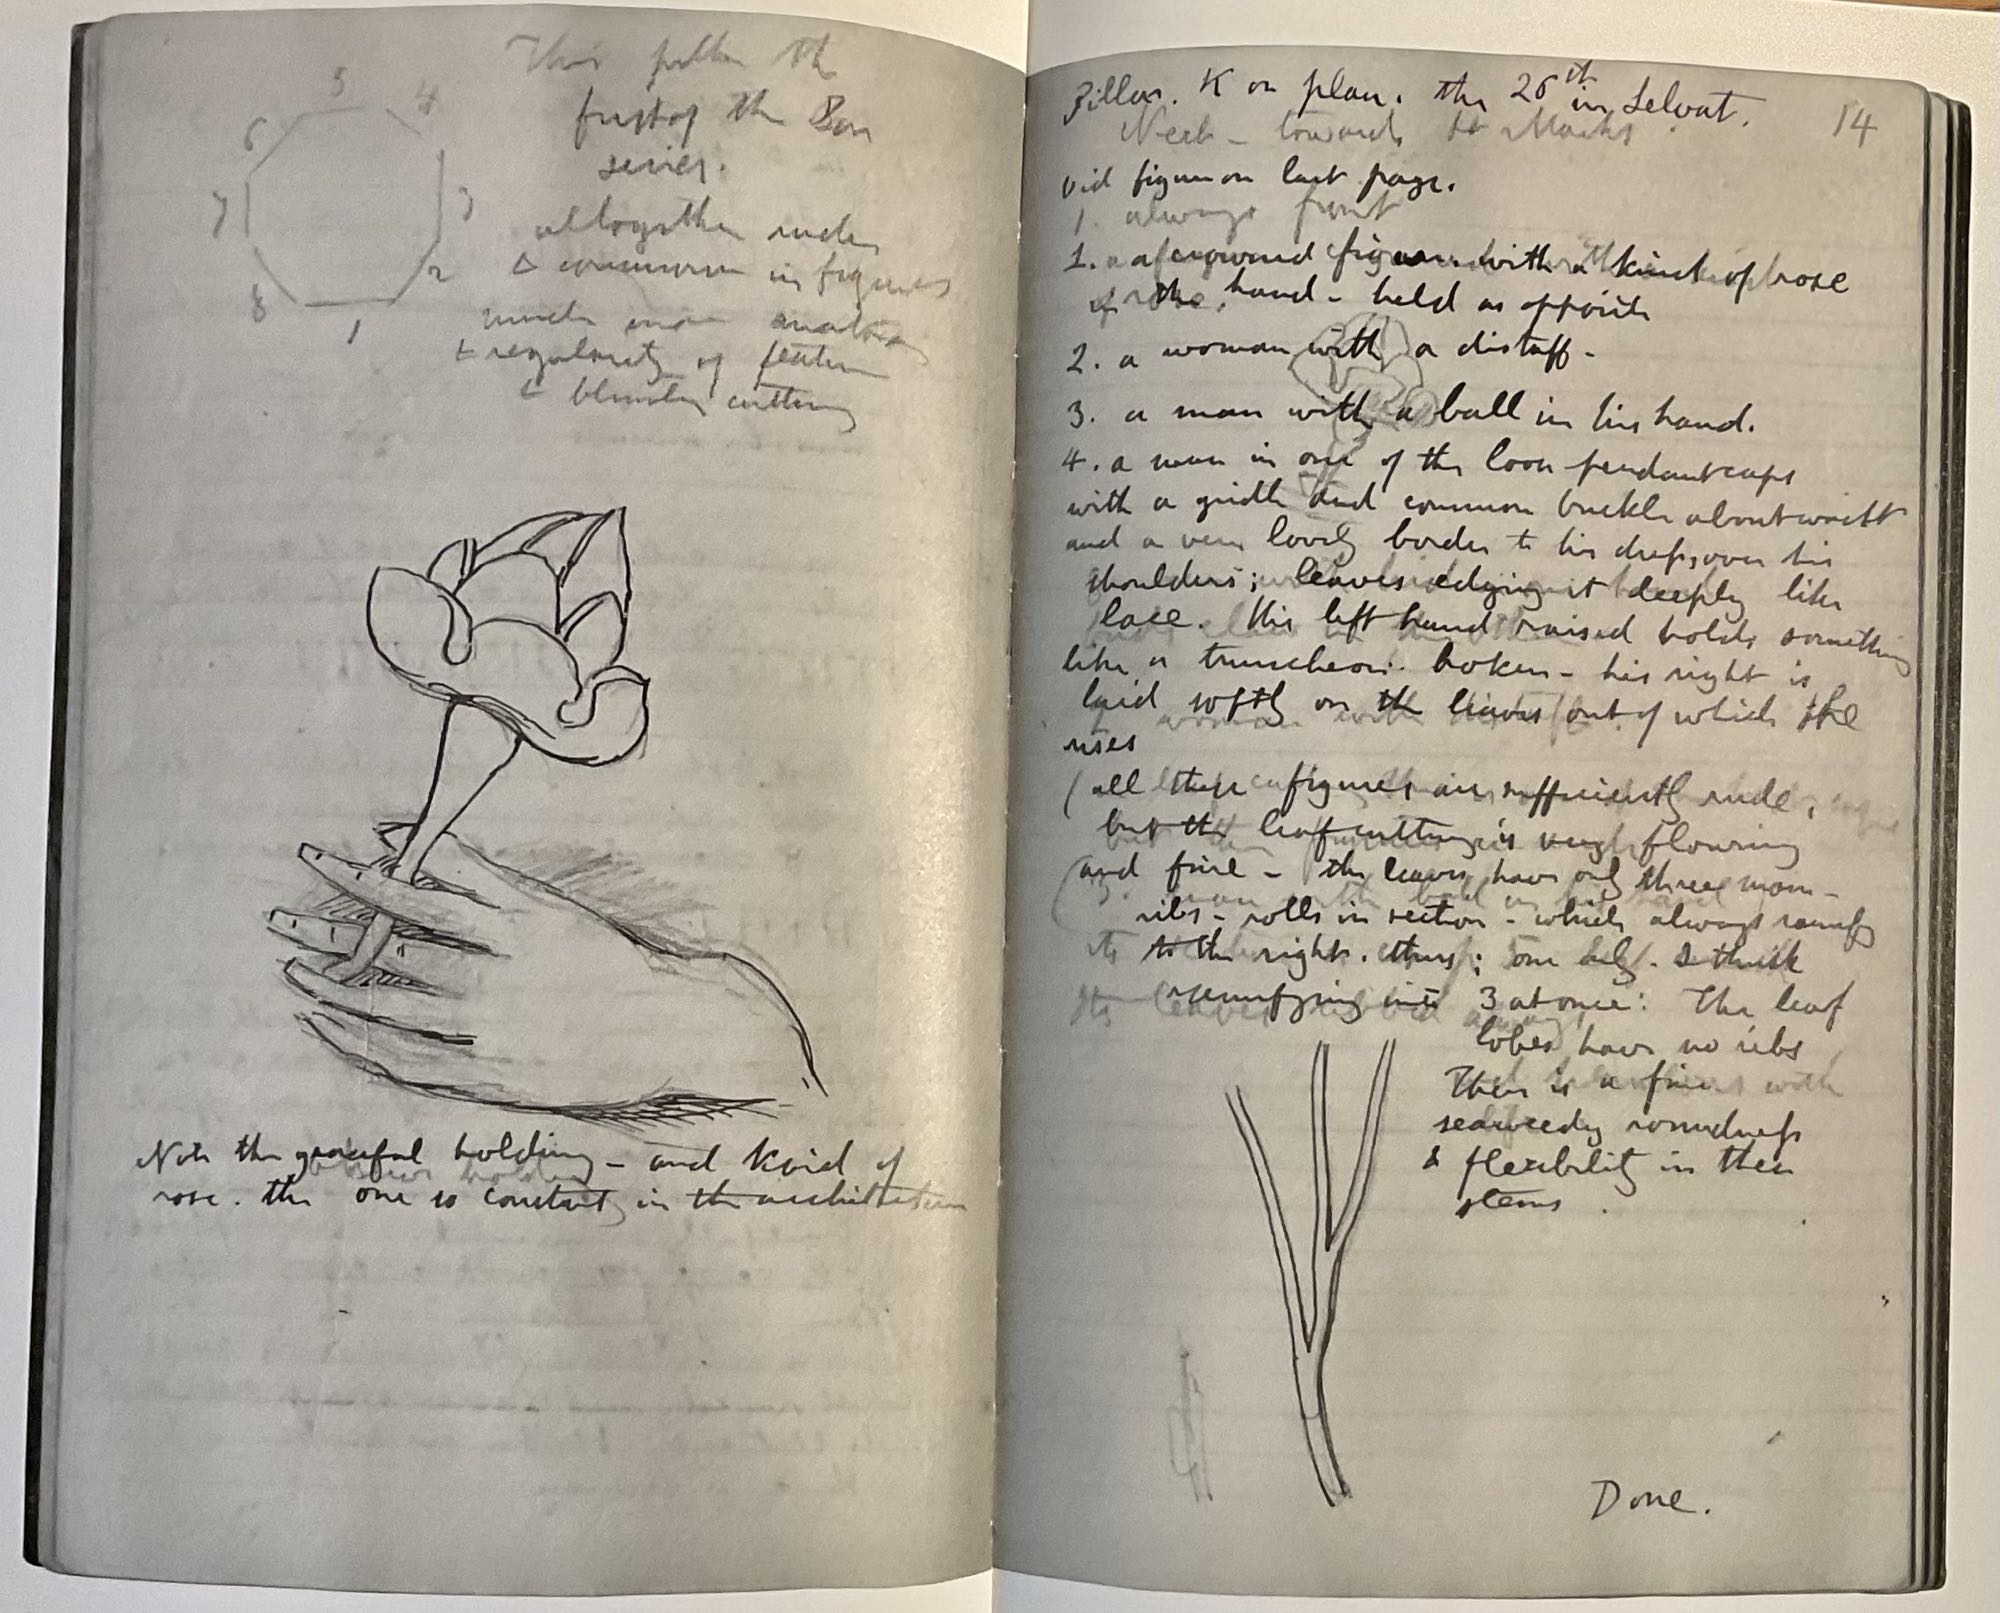 5
4
6
7
3
2
8
1
This pillar the
first of the
series.
altogether ruder
& commoner in figures
much more
& regularity of feature
& cutting
Note the graceful holding - and kind of
rose. the one so constant in the architecture
Pillar. K on plan. the 26th in Selvat.
14
towards St Marks
Vid figure on last page.
1. always front
1. a crowned figure with a kind of rose
in the hand - held as opposite
2. a woman with a distaff -
3. a man with a ball in his hand.
4. a man in one of the loose pendant caps
with a girdle and common buckle about waist
and a very lovely border to his dress, over his
shoulders; leaves edging it deeply like
lace. His left hand raised holds something
like a truncheon: broken - his right is
laid softly on the leaves out of which he
rises
(all these figures are sufficiently rude,
but the leaf cutting is very flowing
and fine - the leaves have only three main
ribs - rolls in section - which always ramify
to the right. thus; one only. I think
ramifying into 3 at once: The leaf
lobes have no ribs
There is a fine
seaweedy roundness
& flexibility in their
stems.
Done.